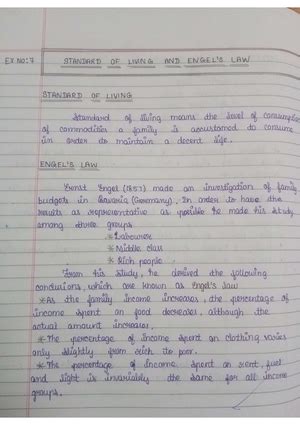 EX NO:7
STANDARD OF LIVING AND ENGEL'S LAW
STANDARD OF LIVING
Standard of living means the level of consumption
of commodities a family is accustomed to consume
in order to maintain a decent life.
ENGEL'S LAW
Ernst Engel (1857) made an investigation of family
budgets in Bavaria (Germany). In order to have the
results as representative as possible he made his study
among three groups
*Labourers
*Middle class
*Rich people
From his study, he derived the following
conclusions, which are known as Engel's law
*As the family income increases, the percentage of
income spent on food decreases, although the
actual amount increases.
*The percentage of income spent on clothing varies
only slightly from rich to poor.
*The percentage of income spent on rent, fuel
and light is invariably the same for all income
groups.